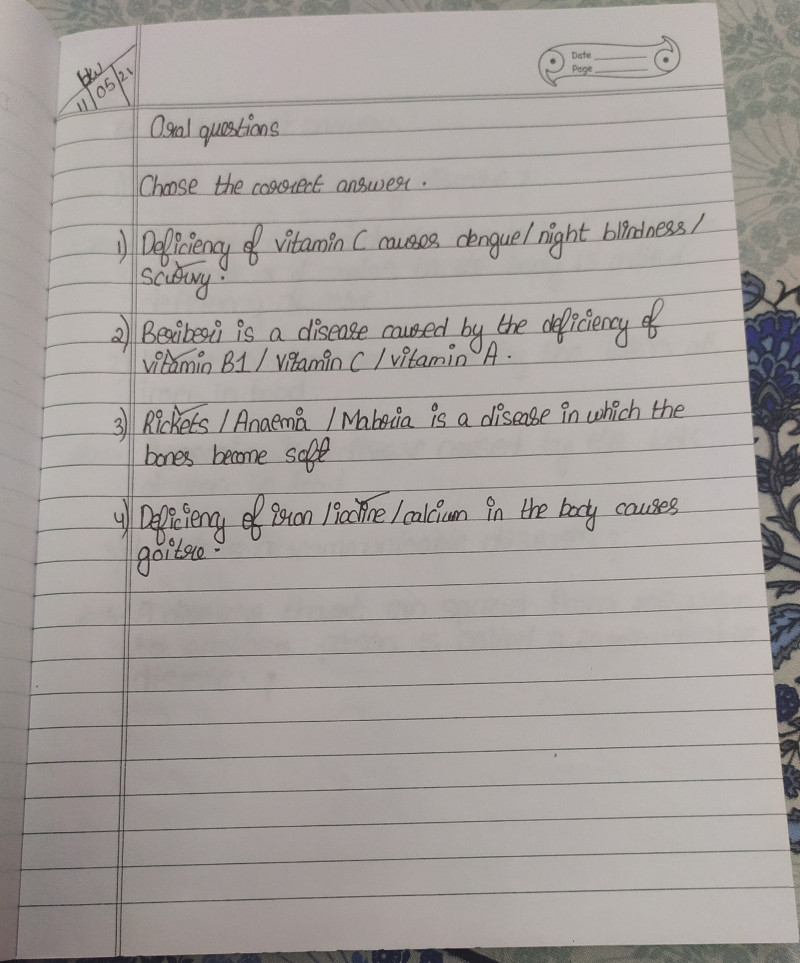 HW
11/05/21
Date
Page
Oral questions
Choose the correct answer.
1) Deficiency of vitamin C causes dengue/night blindness/
scurvy.
2) Beriberi is a disease caused by the deficiency of
vitamin B1 / vitamin C / vitamin A.
3) Rickets / Anaemia / Malaria is a disease in which the
bones become soft
4) Deficiency of iron / iodine / calcium in the body causes
goitre.